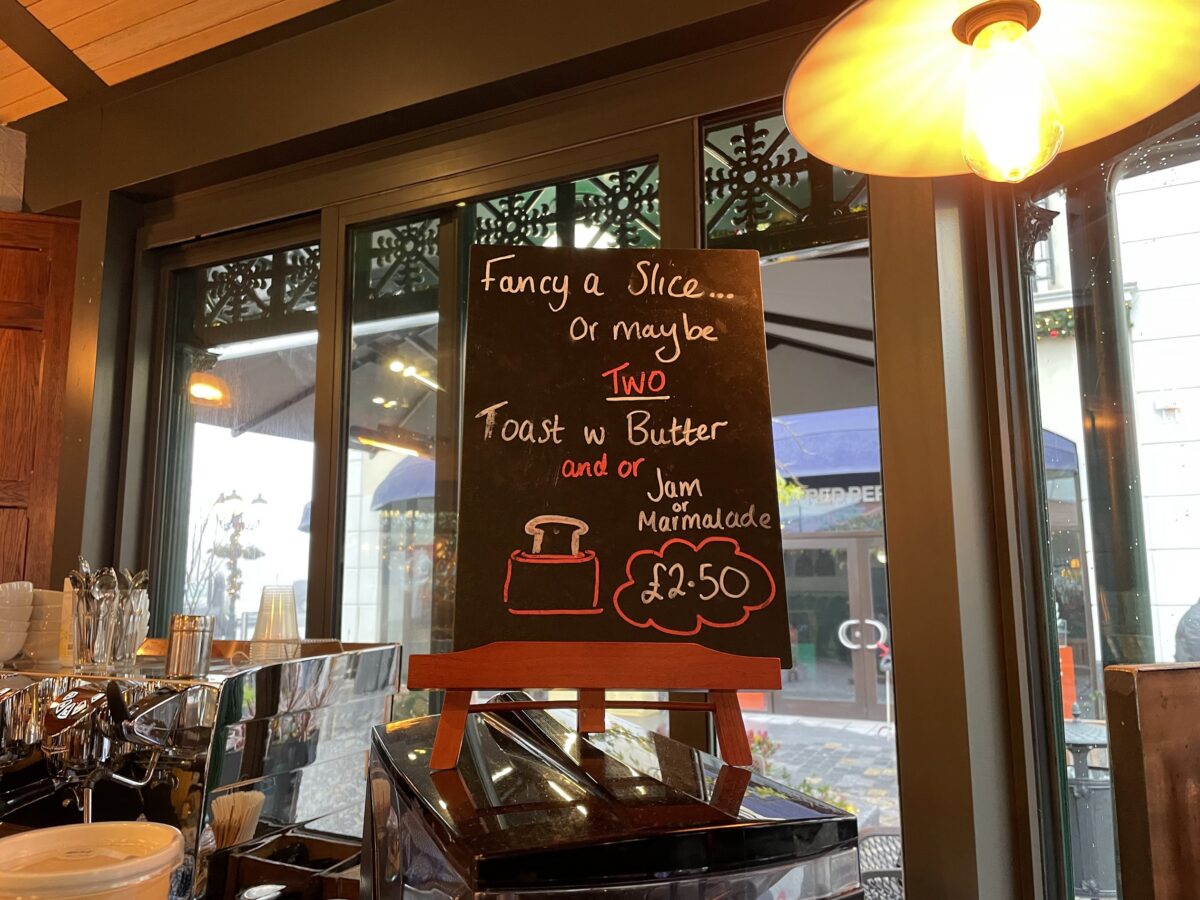 Fancy a Slice...
Or maybe
TWO
Toast w Butter
and or
Jam
or
Marmalade
£2.50